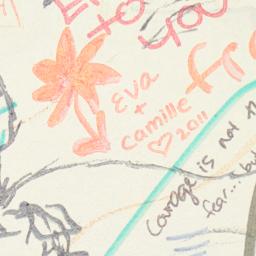 to
you
Eva
+
Camille
♡ 2011
Courage is not
fear... bu